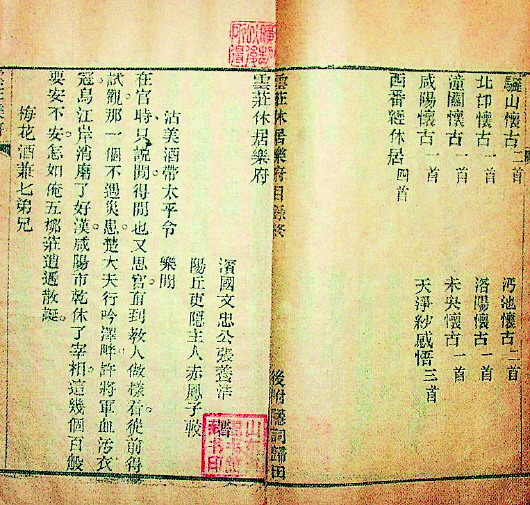 驪山懷古 二首 沔池懷古 二首
北邙懷古 一首 洛陽懷古 一首
潼關懷古 一首 未央懷古 一首
咸陽懷古 二首 天淨紗感悟 三首
西番經休居 四首
雲莊休居樂府目錄終 後附隱詞歸田
雲莊休居樂府
濱國文忠公張養浩 著
陽丘吏隱主人赤鳳子較
沽美酒帶太平令 樂閒
在官時只說閒得閒也又思官直到教人做樣看從前得
試觀那一個不遇災患楚大夫行吟澤畔許將軍血污衣
冠烏江岸消磨了好漢咸陽市乾休了宰相這幾個百般
要安不安怎如俺五柳莊逍遙散誕
梅花酒兼七弟兄